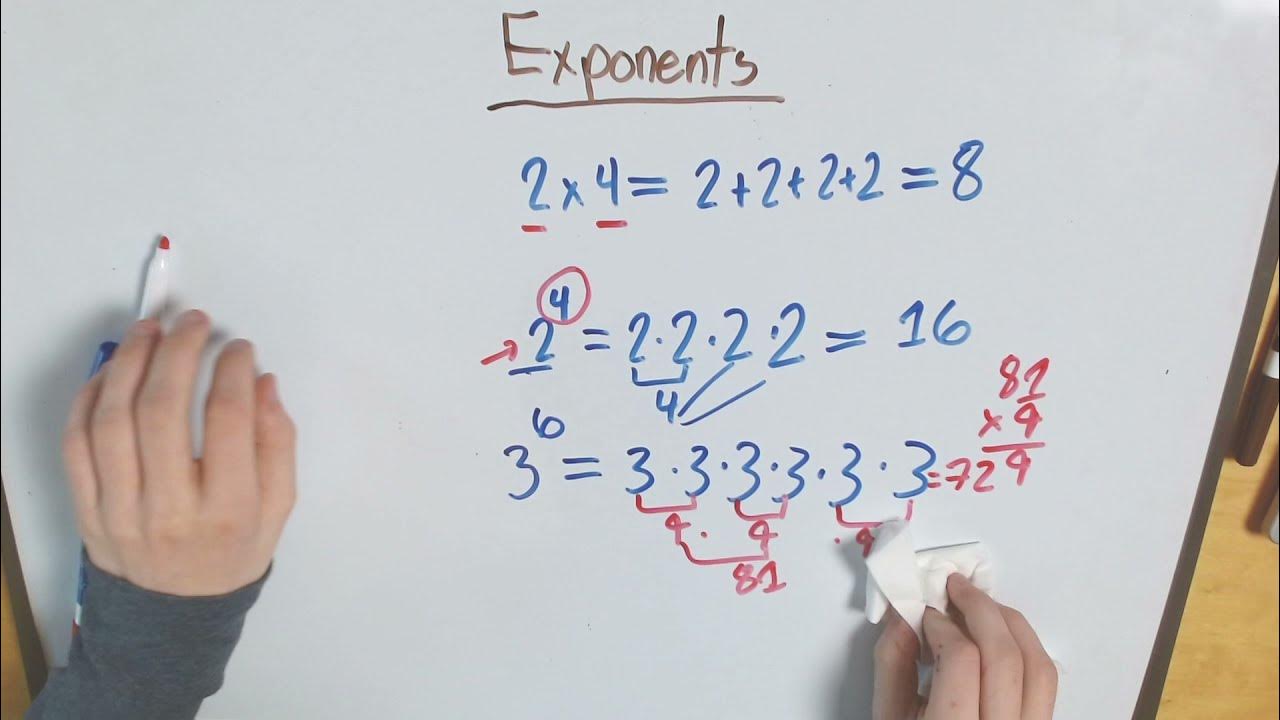 Exponents
2 x 4 = 2+2+2+2 = 8
2⁴ = 2·2·2·2 = 16
4
3⁶ = 3·3·3·3·3·3 = 729
9 · 9 · 9
81
81
x 9
9